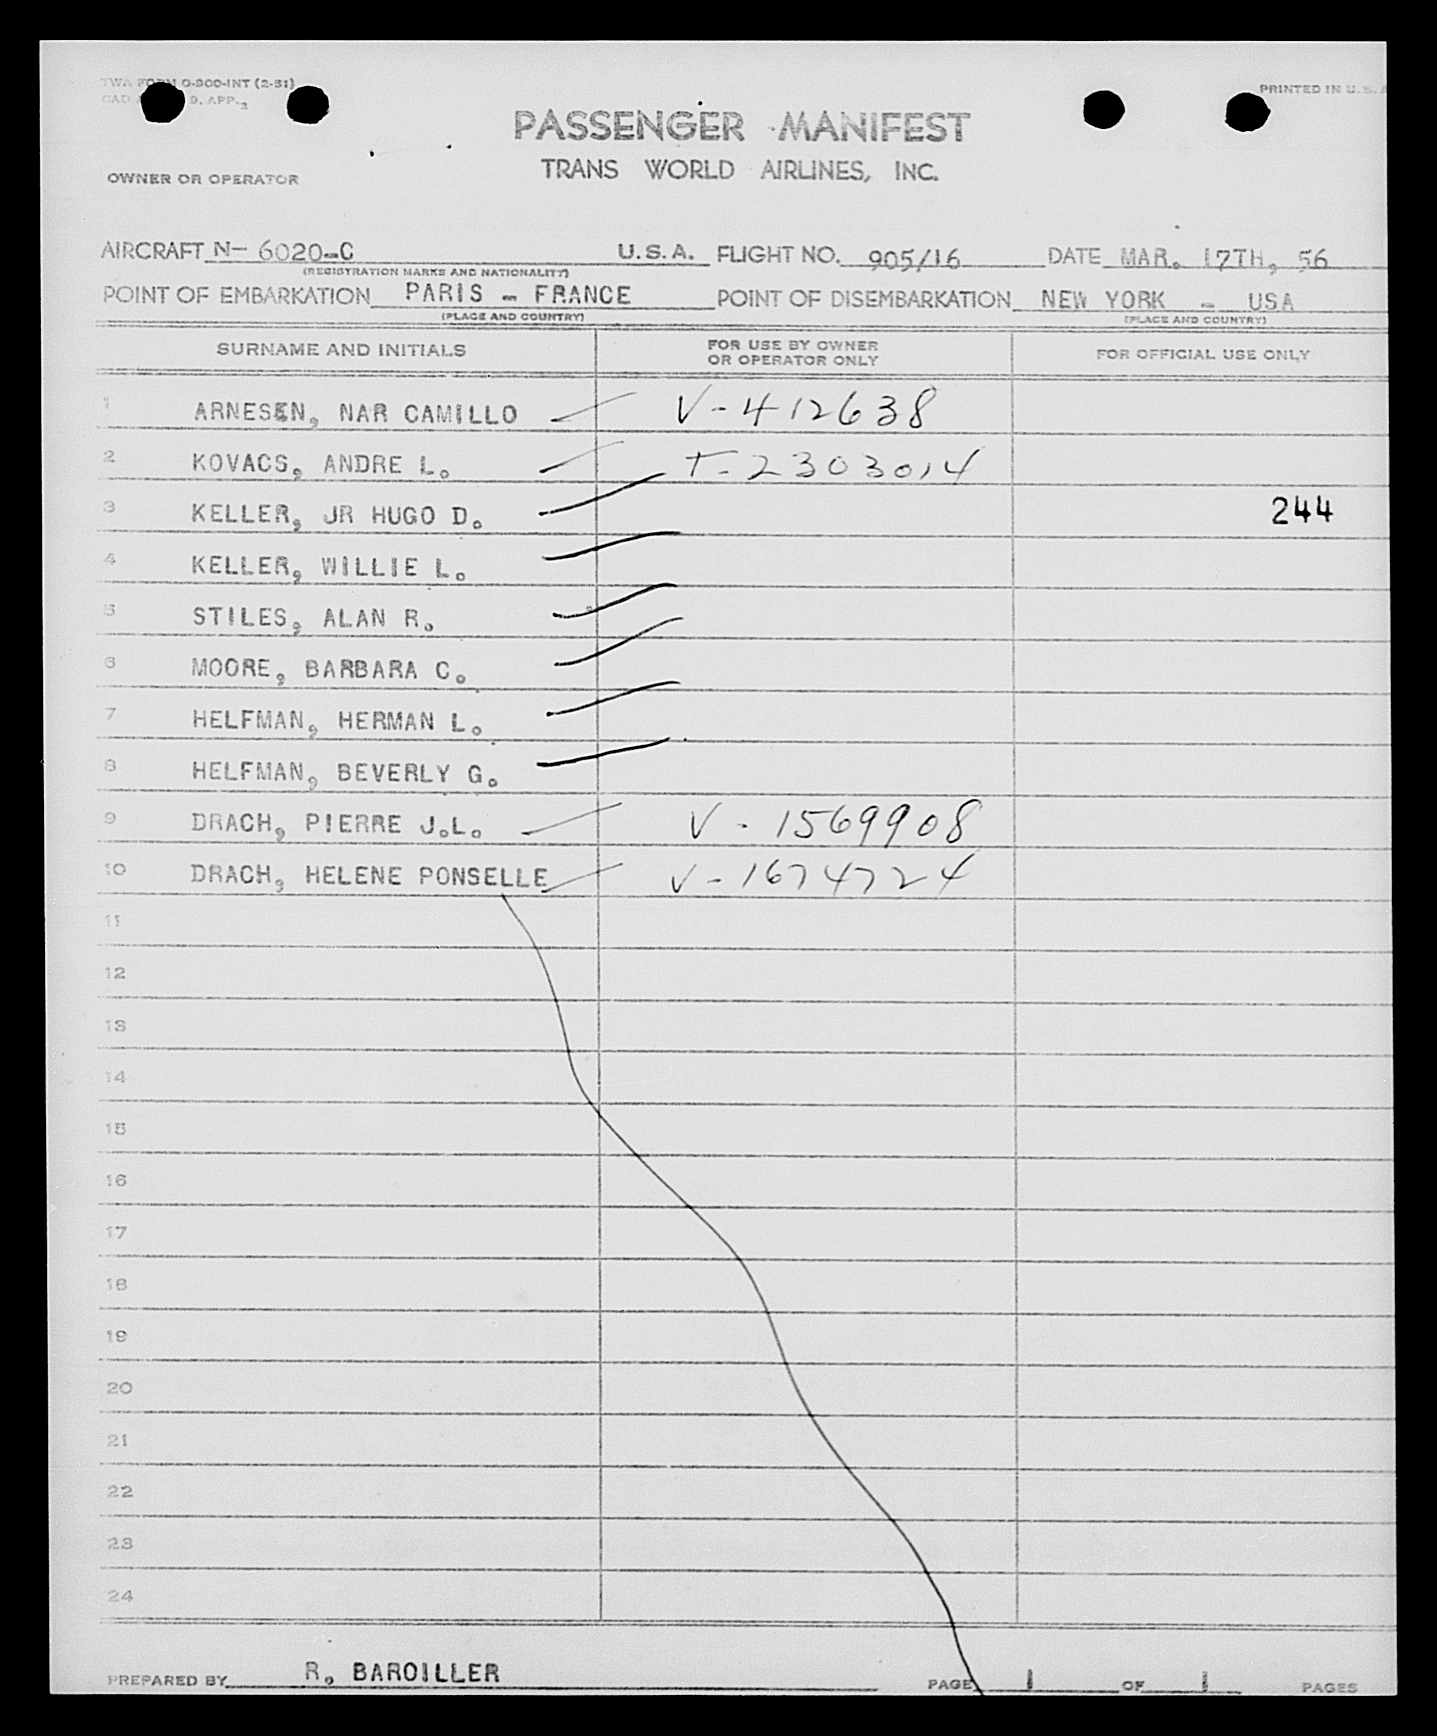 TWA FORM O-800-INT (2-51)
PRINTED IN U.S.A
PASSENGER MANIFEST
TRANS WORLD AIRLINES, INC.
OWNER OR OPERATOR
AIRCRAFT N- 6020-C U.S.A. FLIGHT NO. 905/16 DATE MAR. 17TH, 56
(REGISTRATION MARKS AND NATIONALITY)
POINT OF EMBARKATION PARIS - FRANCE POINT OF DISEMBARKATION NEW YORK - USA
(PLACE AND COUNTRY) (PLACE AND COUNTRY)
SURNAME AND INITIALS FOR USE BY OWNER OR OPERATOR ONLY FOR OFFICIAL USE ONLY
1 ARNESEN, NAR CAMILLO V-412638
2 KOVACS, ANDRE L. T-2303014
3 KELLER, JR HUGO D. 244
4 KELLER, WILLIE L.
5 STILES, ALAN R.
6 MOORE, BARBARA C.
7 HELFMAN, HERMAN L.
8 HELFMAN, BEVERLY G.
9 DRACH, PIERRE J.L. V-1569908
10 DRACH, HELENE PONSELLE V-1674724
11
12
13
14
15
16
17
18
19
20
21
22
23
24
PREPARED BY R. BAROILLER PAGE 1 OF 1 PAGES